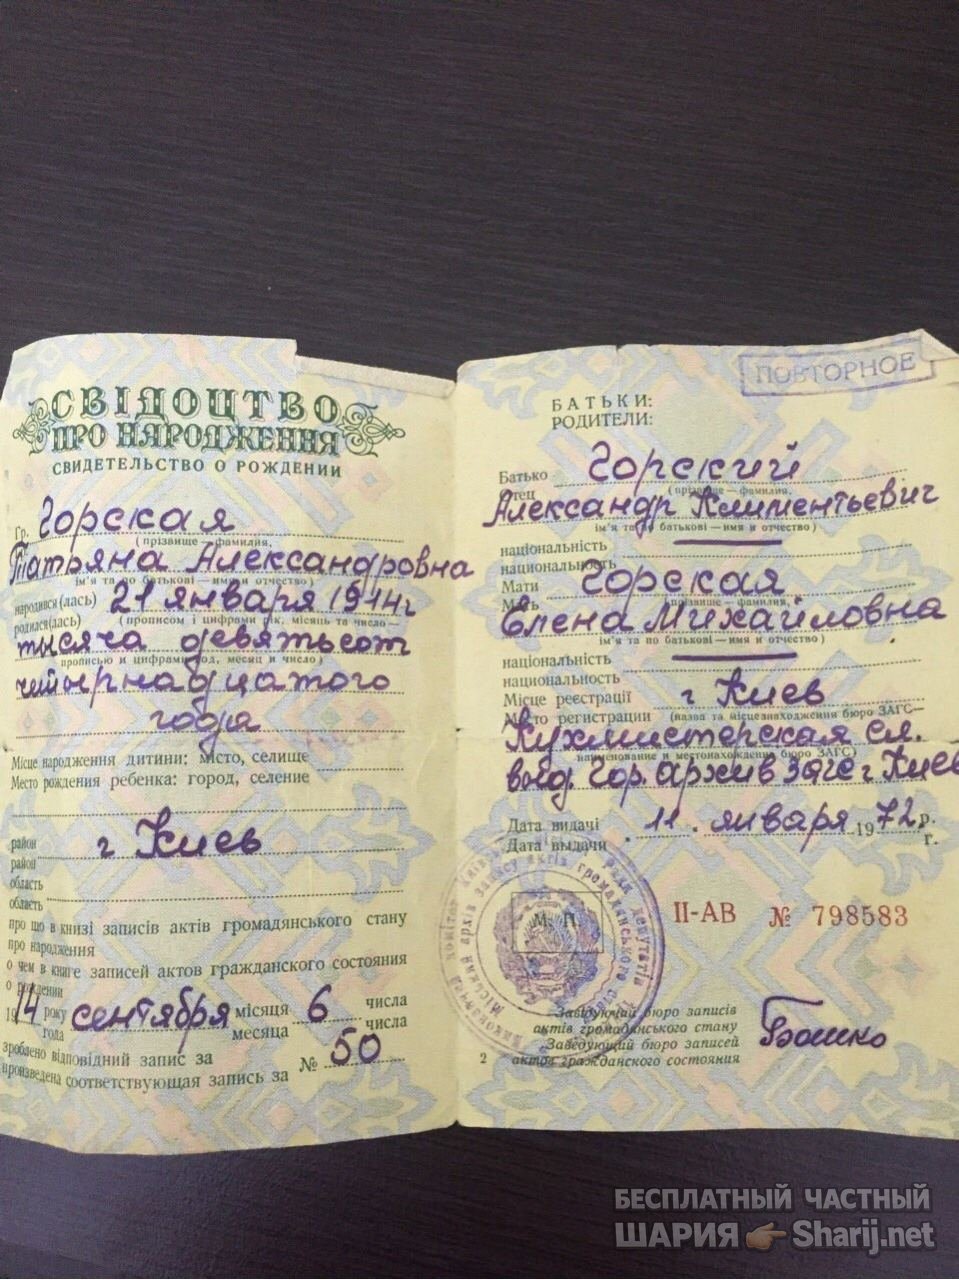 СВІДОЦТВО
ПРО НАРОДЖЕННЯ
СВИДЕТЕЛЬСТВО О РОЖДЕНИИ
Гр. Горская
(прізвище — фамилия,
Татьяна Александровна
ім'я та по батькові — имя и отчество)
народився (лась) 21 января 1914 г
родился (лась) (прописом і цифрами рік, місяць та число —
тысяча девятьсот
прописью и цифрами год, месяц и число)
четырнадцатого
года
Місце народження дитини: місто, селище
Место рождения ребенка: город, селение
район г Киев
район
область
область
про що в книзі записів актів громадянського стану
про народження
о чем в книге записей актов гражданского состояния
о рождении
1914 року сентября місяця 6 числа
года месяца числа
зроблено відповідний запис за № 50
произведена соответствующая запись за
ПОВТОРНОЕ
БАТЬКИ:
РОДИТЕЛИ:
Батько Горский
Отец (прізвище — фамилия,
Александр Климентьевич
ім'я та по батькові — имя и отчество)
національність
национальность
Мати Горская
Мать (прізвище — фамилия,
Елена Михайловна
ім'я та по батькові — имя и отчество)
національність
национальность
Місце реєстрації г Киев
Место регистрации (назва та місцезнаходження бюро ЗАГС —
Кухмистерская сл.
наименование и местонахождение бюро ЗАГС)
Гор. архив загс г Киев
Дата видачі 11 января 1972 р.
Дата выдачи г.
М П
II-АВ № 798583
Завідуючий бюро записів
актів громадянського стану
Заведующий бюро записей
актов гражданского состояния
Бошко
2
БЕСПЛАТНЫЙ ЧАСТНЫЙ
ШАРИЯ 👉 Sharij.net